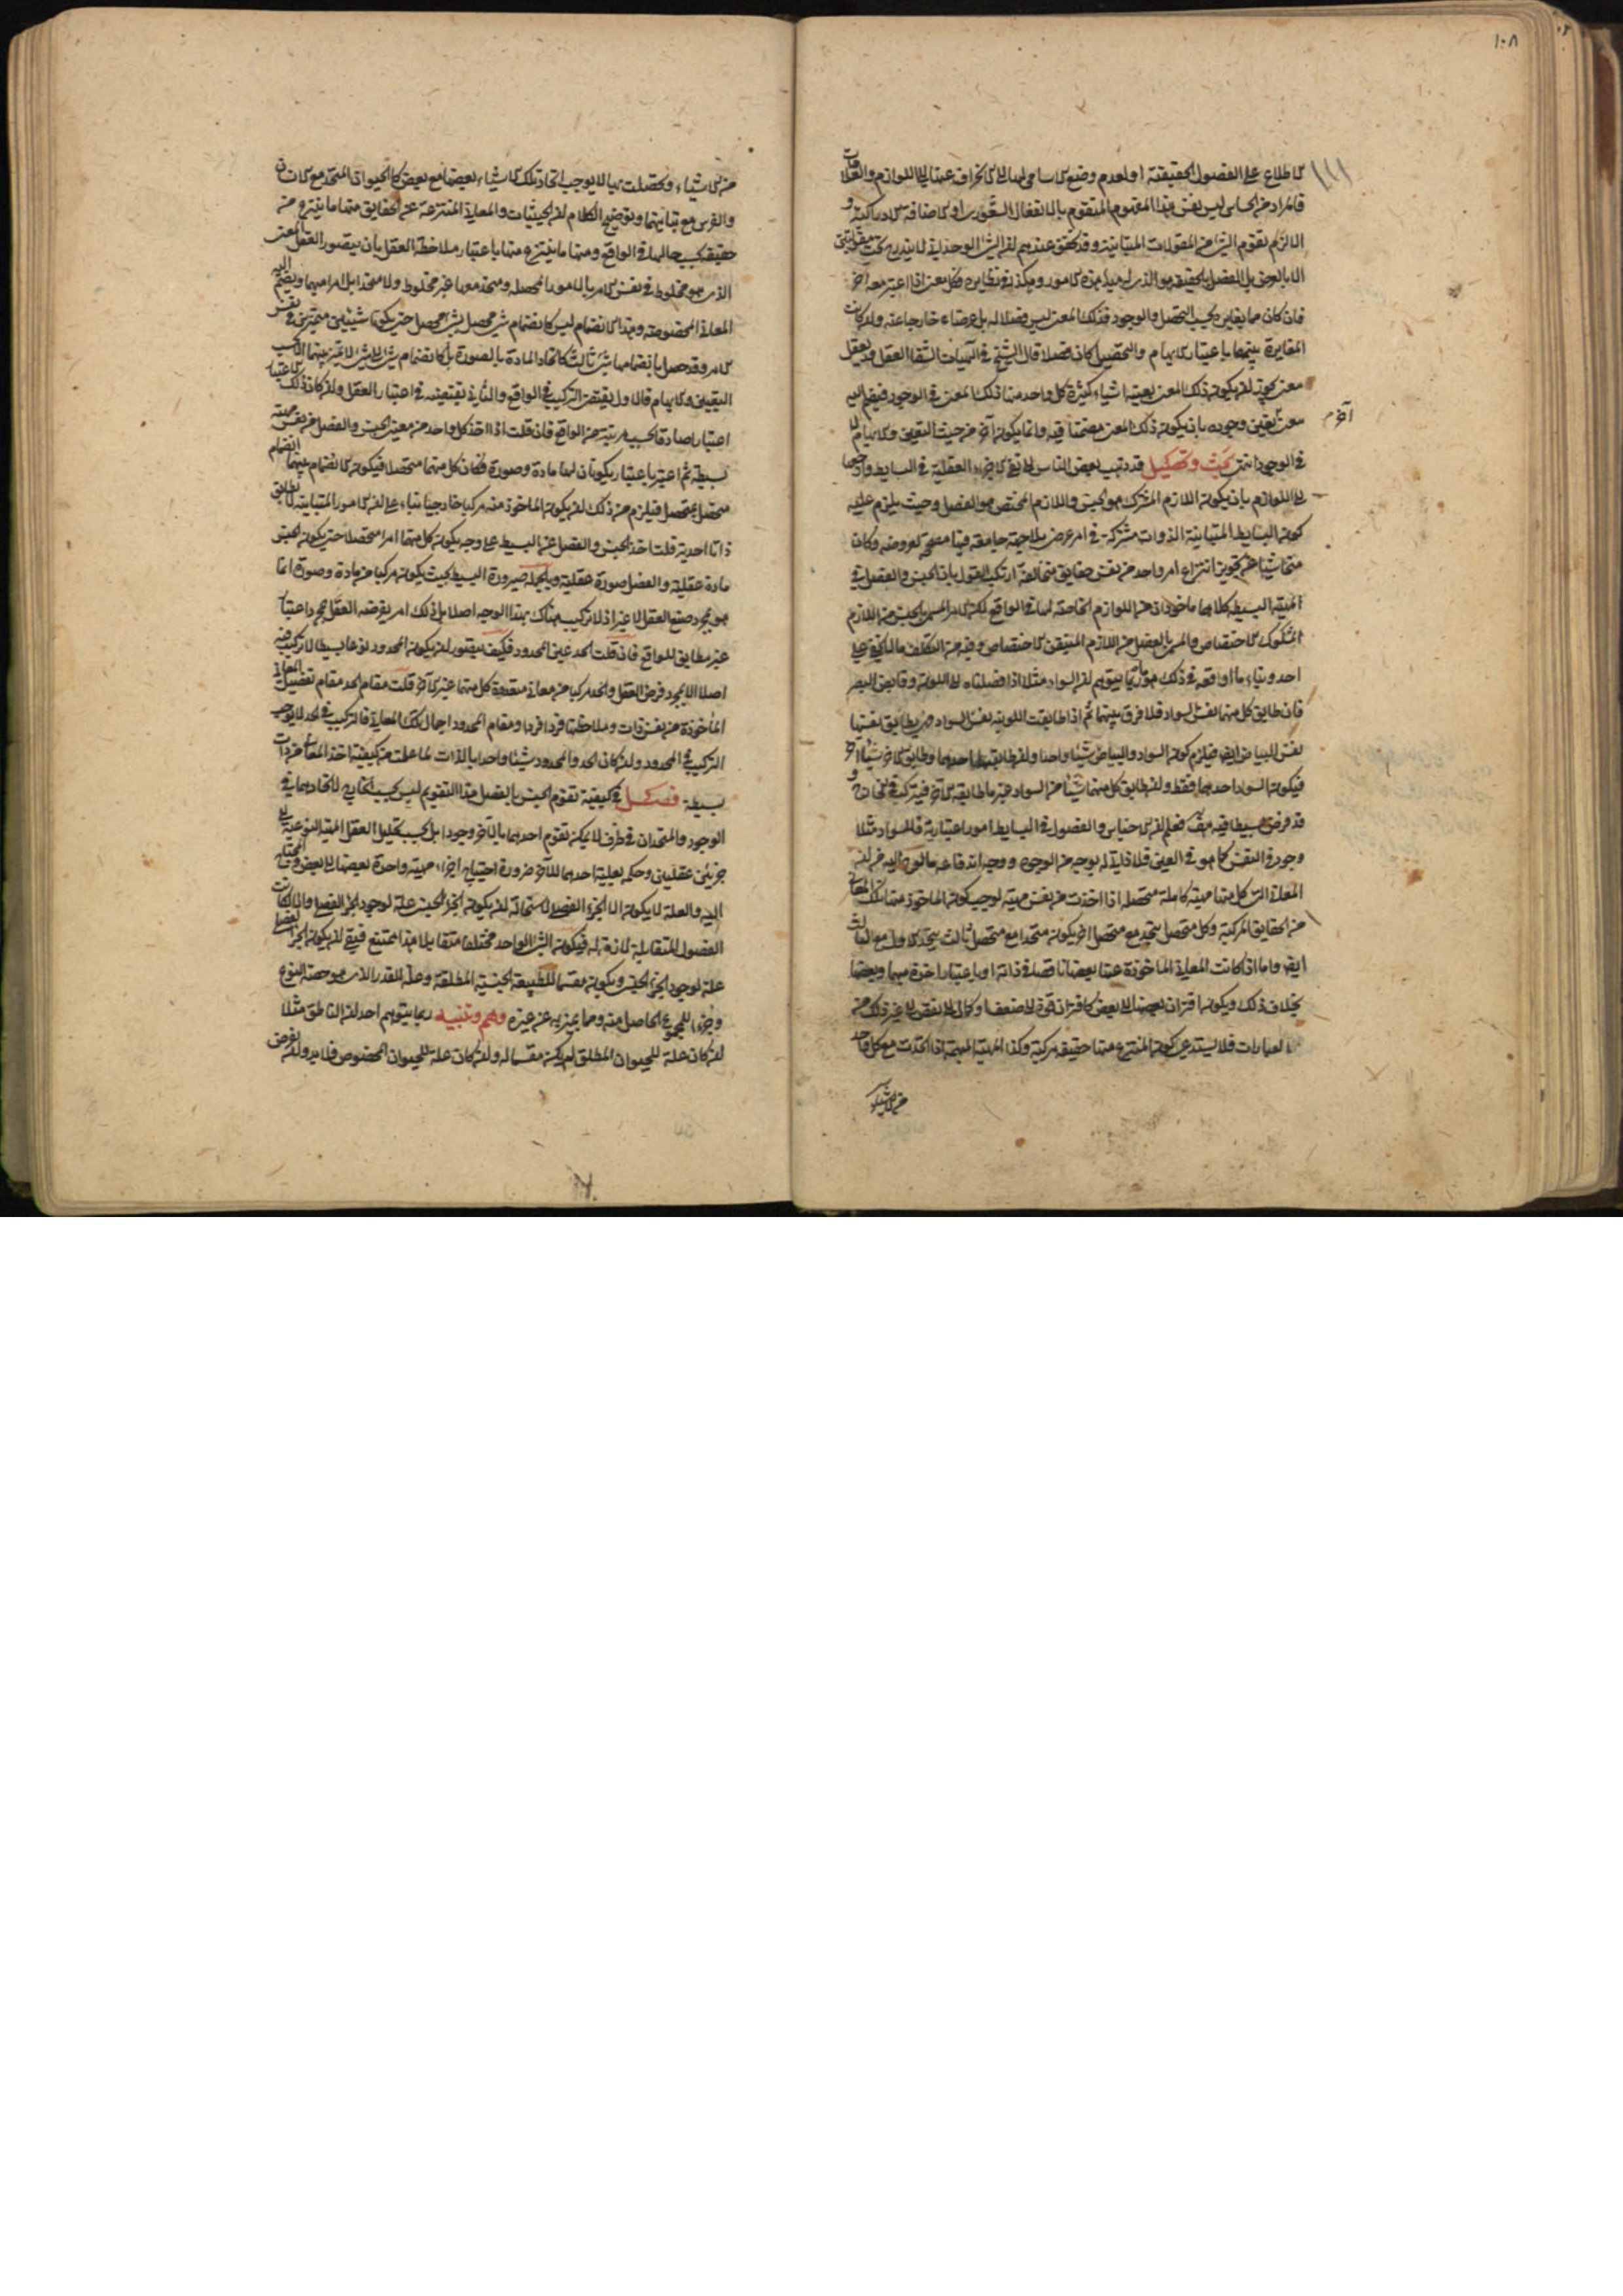 ١٠٨
الاطلاع على الفصول الحقيقية او لعدم وضع الاسامي لها الى الانحراف عنها الى اللوازم والعلامات
فالمراد من الحساس ليس نفس هذا المفهوم المتقوم بالانفعال الشعوري او الاضافة الادراكية و
الا لزم تقوم الشئ من المقولات المتباينة وقد تحقق عندهم ان الشئ الوحداني لا يندرج تحت مقولتين
الا بالعرض بل الفصل بالحقيقة هو الذي له مبدء هذه الامور وهكذا في نظايره فكل معنى اذا اعتبر معه اخر
فان كان مما يغايره بحسب التحصل والوجود فذلك المعنى ليس فصلا له بل عرضا خارجا عنه وان كانت
المغايرة بينهما باعتبار الابهام والتحصيل كان فصلا قال الشيخ في الهيات الشفا العقل قد يعقل
معنى يجوز ان يكون ذلك المعنى بعينه اشياء كثيرة كل واحد منها ذلك المعنى في الوجود فيضم اليه
معنى يعين وجوده بان يكون ذلك المعنى مضمنا فيه وانما يكون آخر من حيث التعين والابهام لا
آخر
في الوجود انتهى بحث وتحصيل قد ذهب بعض الناس الى نفي الاجزاء العقلية في البسايط وارجعها
الى اللوازم بان يكون اللازم المشترك هو الجنس واللازم المختص هو الفصل وحيث يلزم عليه
كون البسايط المتباينة الذوات مشتركة في امر عرضي بلا جهة جامعة فيها مصححة لعروضه وكان
متحاشيا عن تجويز انتزاع امر واحد من نفس حقايق متخالفة ارتكب القول بان الجنس والفصل في
المهية البسيطة كلاهما ماخوذان من اللوازم الخاصة لها في الواقع لكن الامر المسمى بالجنس من اللازم
المشكوك الاختصاص والمسمى بالفصل من اللازم المتيقن الاختصاص وفيه من التكلف ما لا يخفى على
احد وبناء ما اوقعه في ذلك هو انه ربما يتوهم ان السواد مثلا اذا فصلناه الى اللونية وقابض البصر
فان طابق كل منهما نفس السواد فلا فرق بينهما ثم اذا طابقت اللونية نفس السواد وهي يطابق بعينها
نفس البياض ايضا فيلزم كون السواد والبياض شيئا واحدا وان طابقهما احدهما وطابق الاخر شيئا اخر
فيكون السواد احدهما فقط وان طابق كل منهما شيئا من السواد غير ما طابقه الاخر فيتركب في الخارج و
قد فرض بسيطا فيه هف فعلم ان الاجناس والفصول في البسايط امور اعتبارية فالسواد مثلا
وجوده في النفس كما هو في العين فلا ذاتي له بوجه من الوجوه ووجه اندفاعه ما لوح اليه من ان
المعاني التي كل منها مهية كاملة متحصلة اذا اخذت من نفس مهية لوجب كون الماخوذ منها تلك المعاني
من الحقايق المركبة وكل متحصل يتحد مع متحصل اخر يكون متحدا مع متحصل ثالث يتحد الاول مع الثالث
ايضا واما اذا كانت المعاني الماخوذة عنها بعضها ناقصا في ذاته او باعتبار اخذه مبهما وبعضها
بخلاف ذلك ويكون اقتران بعضها الى بعض كاقتران قوة الى ضعف او كمال الى نقص الى غير ذلك من
العبارات فلا يستدعي كون المنتزع منها حقيقة مركبة وكذا المهية المبهمة اذا اتحدت مع كل واحد
من الاشياء
من الاشياء وتحصلت بها لا يوجب اتحاد تلك الاشياء بعضها مع بعض كالحيوان المتحد مع الانسان
والفرس مع تباينهما وتوضيح الكلام ان الحيثيات والمعاني المنتزعة عن الحقايق منها ما ينتزع من
حقيقة بحسب حالها في الواقع ومنها ما ينتزع منها باعتبار ملاحظة العقل بان يتصور العقل المعنى
الذي هو مخلوط في نفس الامر بالامور المحصلة ومتحد معها غير مخلوط ولا متحد بل امرا مبهما ويضم اليه
المعاني المخصوصة وهذا الانضمام ليس كانضمام شئ محصل بشئ محصل حتى يكونا شيئين متميزين في نفس
الامر وقد حصل بانضمامهما شئ ثالث كاتحاد المادة بالصورة بل كانضمام شئ الى شئ لا تميز بينهما الا بحسب
التعين والابهام فالاول يقتضي التركيب في الواقع والثاني يقتضيه في اعتبار العقل وان كان ذلك الاعتبار
اعتبارا صادقا بحسب مرتبة من الواقع فان قلت اذا اخذ كل واحد من معنيي الجنس والفصل من نفس مهية
بسيطة ثم اعتبر باعتبار يكونان لها مادة وصورة فكان كل منهما متحصلا فيكون الانضمام بينهما انضمام
متحصل بمتحصل فيلزم من ذلك ان يكون الماخوذ منه مركبا خارجيا بناء على ان الامور المتباينة لا يطابق
ذاتا احدية قلت اخذ الجنس والفصل عن البسيط على وجه يكون كل منهما امرا متحصلا حتى يكون الجنس
مادة عقلية والفصل صورة عقلية وبالجملة صيرورة البسيط بحيث يكون مركبا من مادة وصورة انما
هو بمجرد صنع العقل لا غير اذ لا تركيب هناك بهذا الوجه اصلا بل ذلك امر يفرضه العقل بمجرد اعتبار
غير مطابق للواقع فان قلت الحد عين المحدود فكيف يتصور ان يكون المحدود نوعا بسيطا لا تركيب فيه
اصلا الا بمجرد فرض العقل والحد مركبا من معاني متعددة كل منها غير الآخر قلت مقام الحد مقام تفصيل المعاني
الماخوذة من نفس ذات وملاحظتها فردا فردا ومقام المحدود اجمال تلك المعاني فالتركيب في الحد لا يوجب
التركيب في المحدود وان كان الحد والمحدود شيئا واحدا بالذات لما علمت من كيفية اخذ المعاني من ذات
بسيطة فصل في كيفية تقوم الجنس بالفصل هذا التقويم ليس بحسب الخارج لاتحادهما في
الوجود والمتحدان في ظرف لا يمكن تقوم احدهما بالآخر وجودا بل بحسب تحليل العقل المهية النوعية الى
جزئين عقليين وحكمه بعلية احدهما للآخر ضرورة احتياج اجزاء مهية واحدة بعضها الى بعض والمحتاج
اليه والعلة لا يكون الا الجزء الفصلي لاستحالة ان يكون الجزء الجنسي علة لوجود الجزء الفصلي والا لكانت
الفصول المتقابلة لازمة له فيكون الشئ الواحد مختلفا متقابلا هذا ممتنع فبقي ان يكون الجزء الفصلي
علة لوجود الجزء الجنسي ويكون مقسما للطبيعة الجنسية المطلقة وعلة للقدر الذي هو حصة النوع
وجزءا للمجموع الحاصل منه ومما يميز به عن غيره وهم وتنبيه ربما يتوهم احد ان الناطق مثلا
ان كان علة للحيوان المطلق لم يكن مقسما له وان كان علة للحيوان المخصوص فلا بد وان يفرض